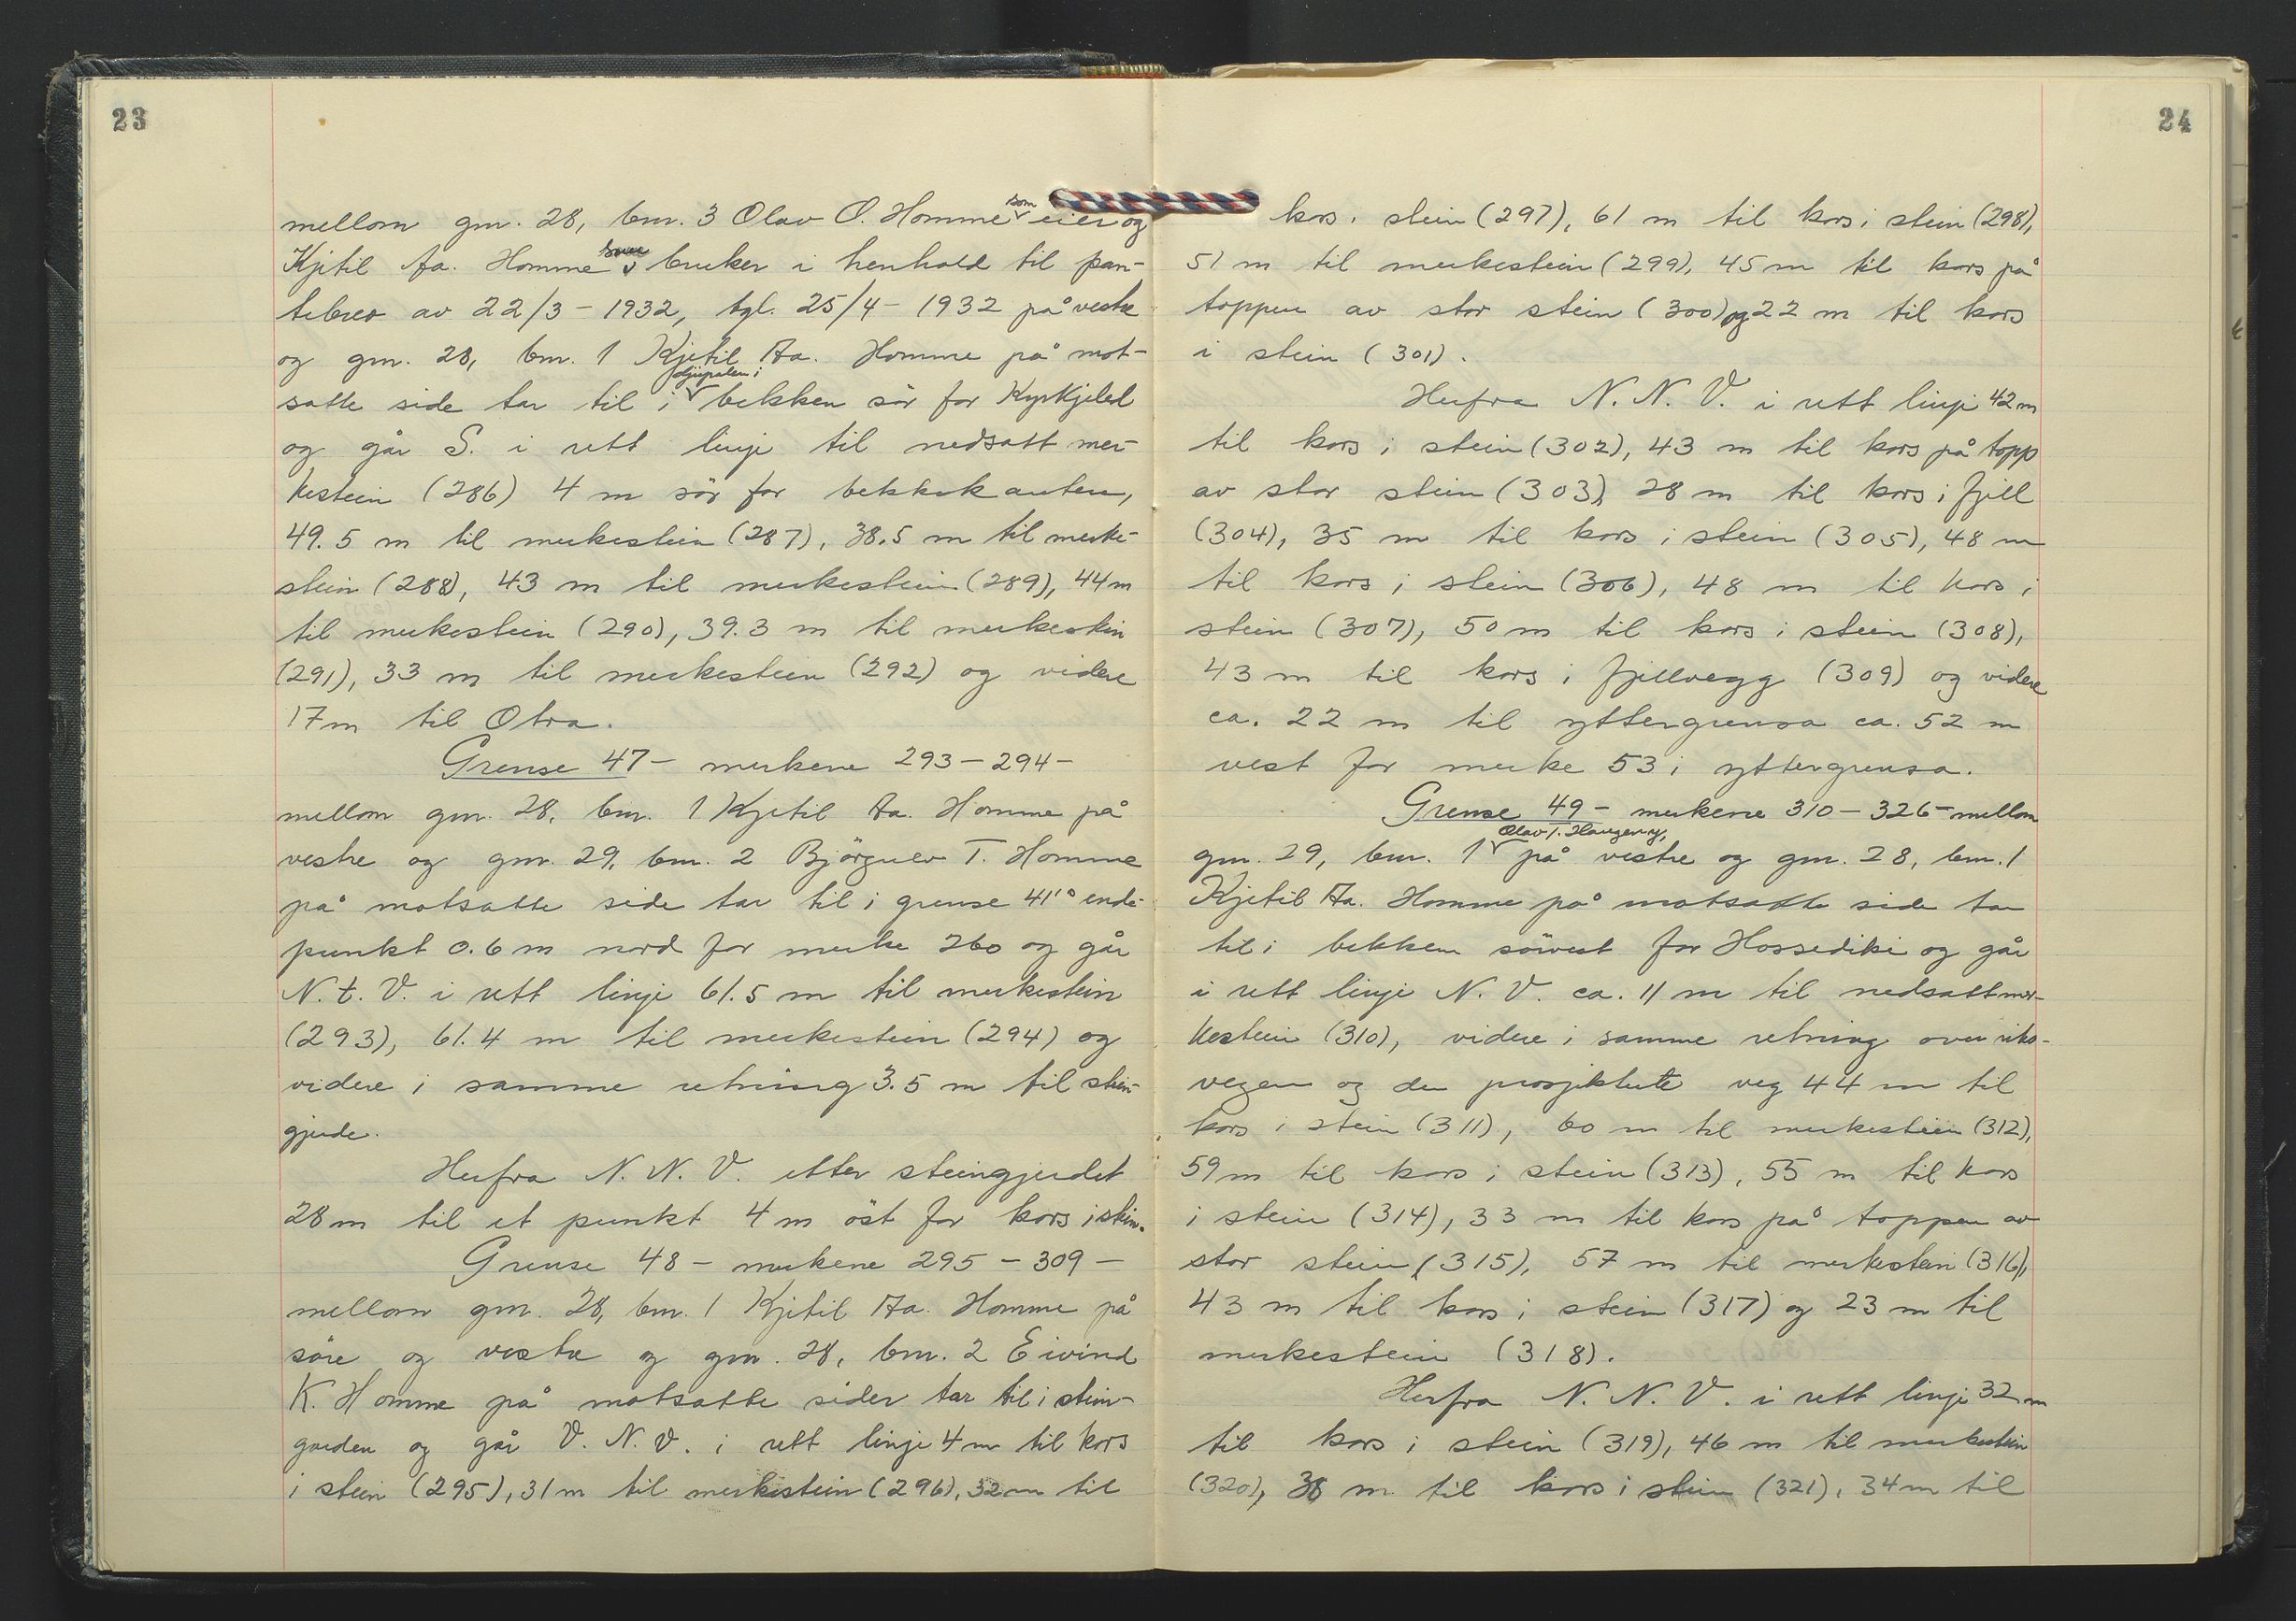 23
mellom gnr. 28, bnr. 3 Olav O. Homme som eier og
Kjetil Aa. Homme som bruker i henhold til pan-
tebrev av 22/3 - 1932, tgl. 25/4 - 1932 på vestre
og gnr. 28, bnr. 1 Kjetil Aa. Homme på mot-
satte side tar til i djupalen i bekken sör for Kyrkjeled
og går S. i rett linje til nedsatt mer-
kestein (286) 4 m sör for bekkekanten,
49.5 m til merkestein (287), 38.5 m til merke-
stein (288), 43 m til merkestein (289), 44 m
til merkestein (290), 39.3 m til merkestein
(291), 33 m til merkestein (292) og videre
17 m til Otra.
Grense 47 - merkene 293 - 294 -
mellom gnr. 28, bnr. 1 Kjetil Aa. Homme på
vestre og gnr. 29, bnr. 2 Björgulv T. Homme
på motsatte side tar til i grense 41's ende-
punkt 0.6 m nord for merke 260 og går
N. t. V. i rett linje 61.5 m til merkestein
(293), 61.4 m til merkestein (294) og
videre i samme retning 3.5 m til stein-
gjerde.
Herfra N. N. V. etter steingjerdet
28 m til et punkt 4 m öst for kors i stein.
Grense 48 - merkene 295 - 309 -
mellom gnr. 28, bnr. 1 Kjetil Aa. Homme på
söre og vestre og gnr. 28, bnr. 2 Eivind
K. Homme på motsatte sider tar til i stein-
garden og går V. N. V. i rett linje 4 m til kors
i stein (295), 31 m til merkestein (296), 32 m til
24
kors i stein (297), 61 m til kors i stein (298),
51 m til merkestein (299), 45 m til kors på
toppen av stor stein (300) og 22 m til kors
i stein (301).
Herfra N. N. V. i rett linje 42 m
til kors i stein (302), 43 m til kors på topp
av stor stein (303), 28 m til kors i fjell
(304), 35 m til kors i stein (305), 48 m
til kors i stein (306), 48 m til kors i
stein (307), 50 m til kors i stein (308),
43 m til kors i fjellvegg (309) og videre
ca. 22 m til yttergrensa ca. 52 m
vest for merke 53 i yttergrensa.
Grense 49 - merkene 310 - 326 - mellom
gnr. 29, bnr. 1 Olav T. Haugen på vestre og gnr. 28, bnr. 1
Kjetil Aa. Homme på motsatte side tar
til i bekken sörvest for Hossediki og går
i rett linje N. V. ca. 11 m til nedsatt mer-
kestein (310), videre i samme retning over riks-
vegen og den prosjekterte veg 44 m til
kors i stein (311), 60 m til merkestein (312),
59 m til kors i stein (313), 55 m til kors
i stein (314), 33 m til kors på toppen av
stor stein (315), 57 m til merkestein (316),
43 m til kors i stein (317) og 23 m til
merkestein (318).
Herfra N. N. V. i rett linje 32 m
til kors i stein (319), 46 m til merkestein
(320), 38 m til kors i stein (321), 34 m til